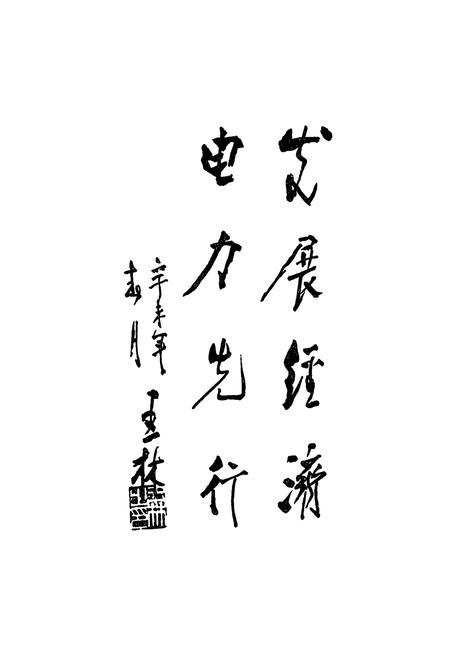 发展經濟
电力先行
辛未年
春月
林